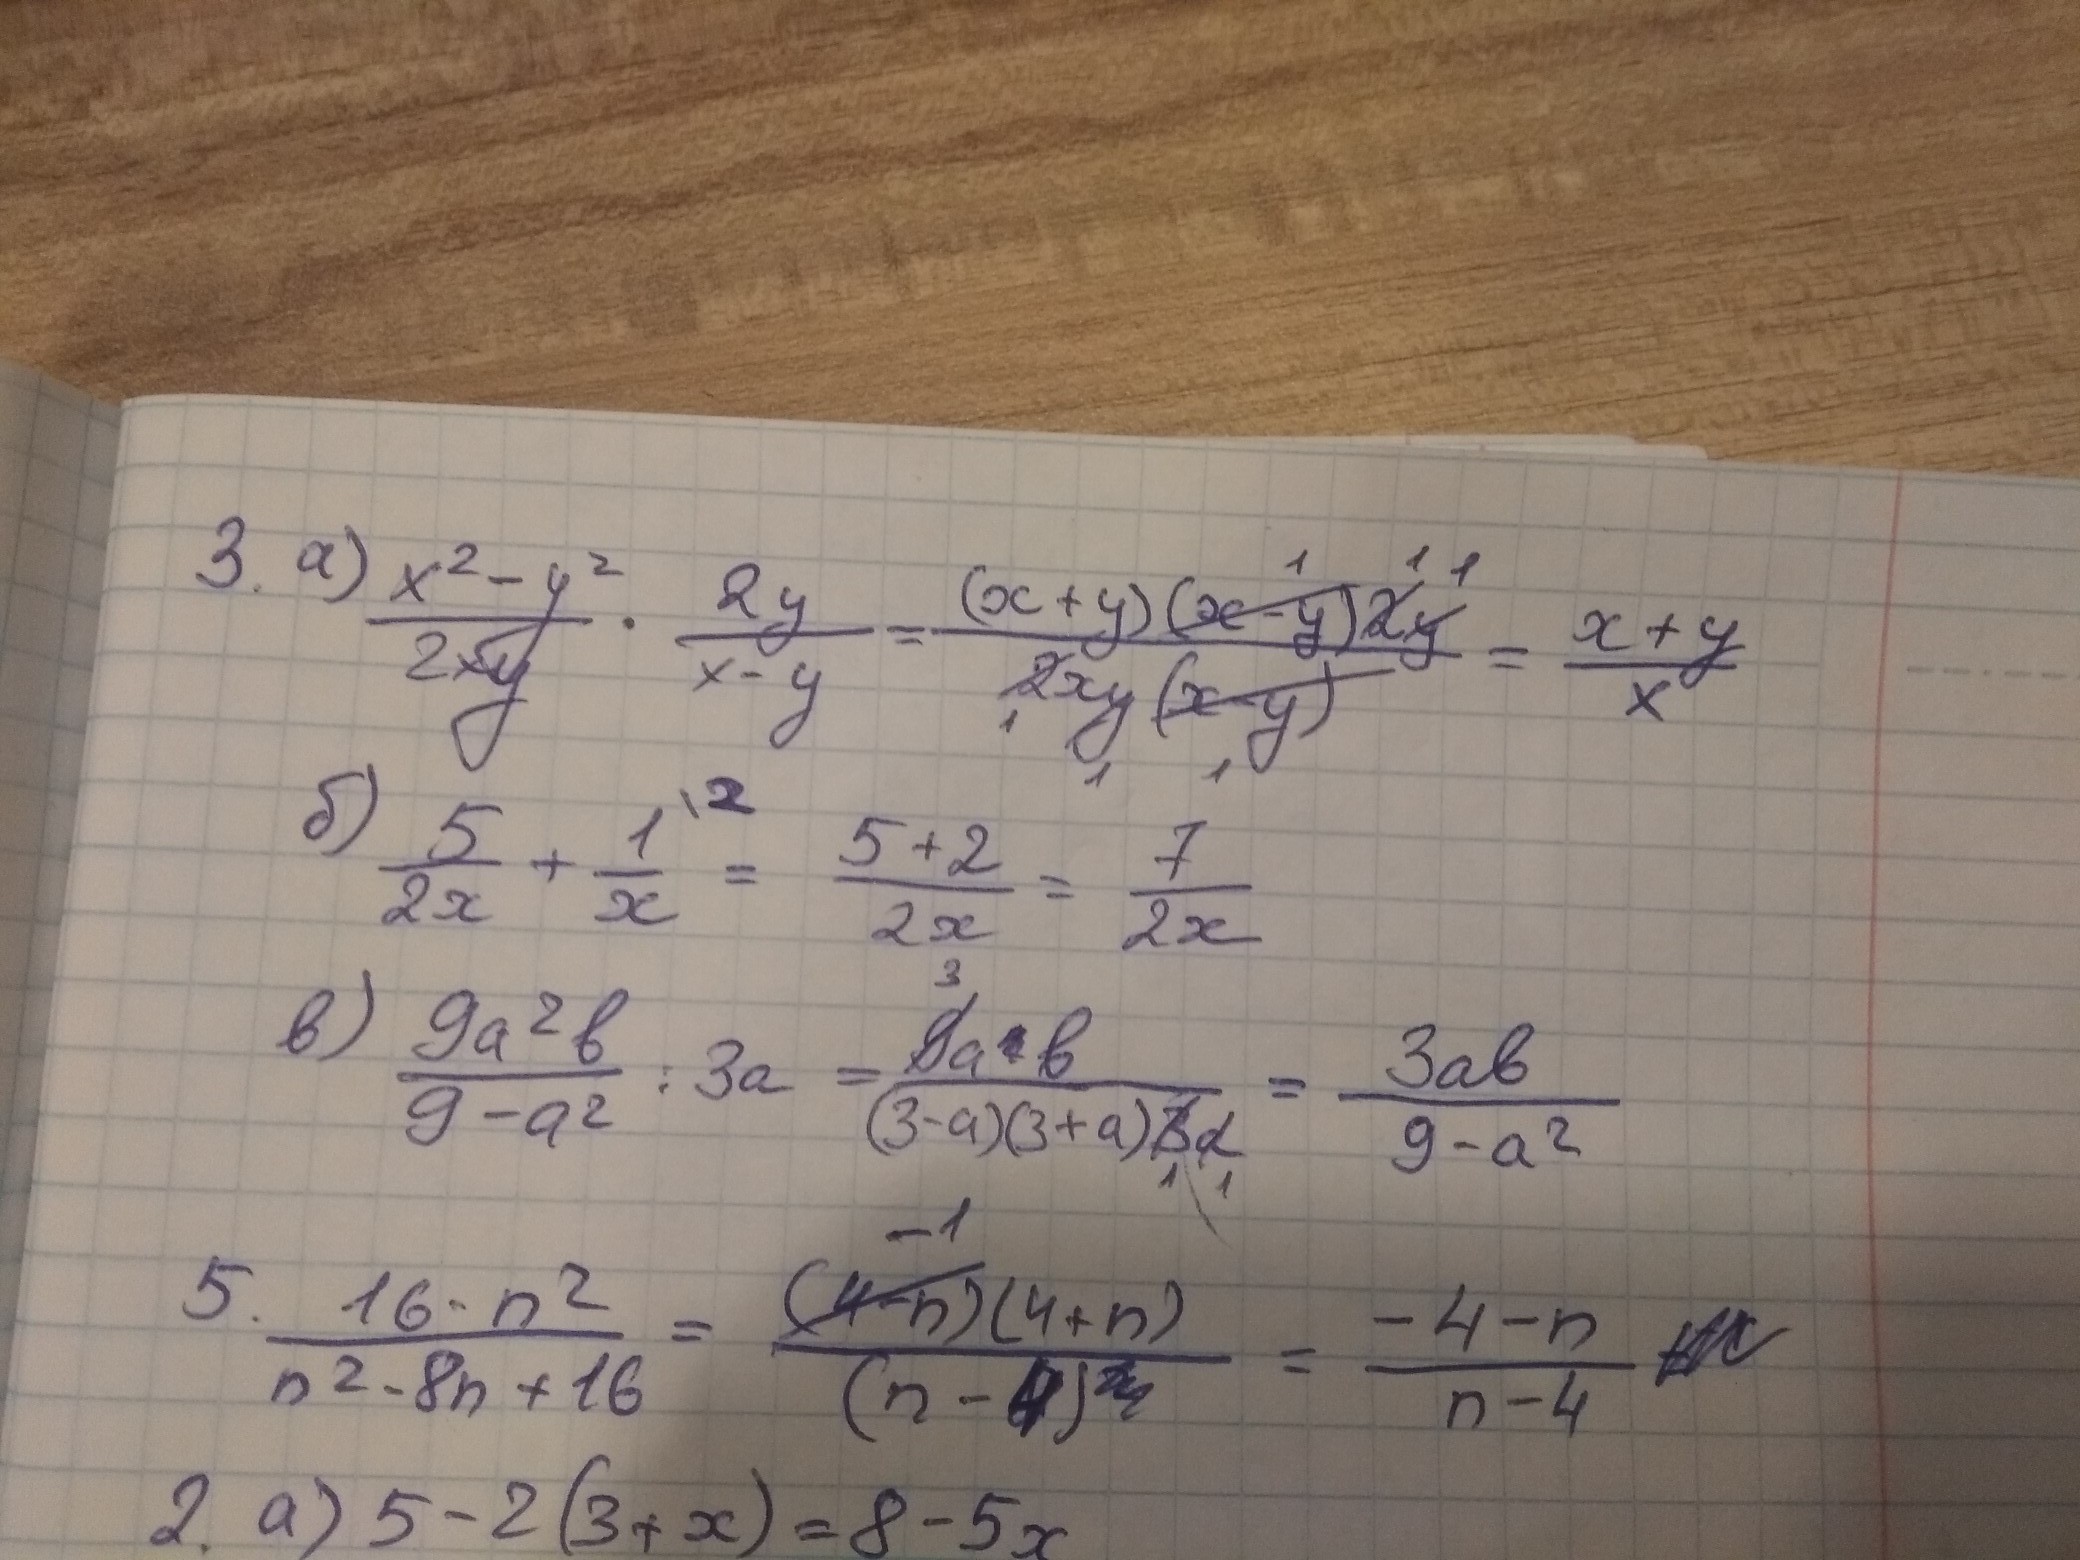 3. а) x² - y² / 2xy · 2y / x - y = (x + y)(x - y)2y / 2xy(x - y) = x + y / x
б) 5 / 2x + 1 / x \2 = 5 + 2 / 2x = 7 / 2x
в) 9a²b / 9 - a² : 3a = 9a²b / (3 - a)(3 + a)3a = 3ab / 9 - a²
5. 16 - n² / n² - 8n + 16 = (4 - n)(4 + n) / (n - 4)² = -4 - n / n - 4
2. а) 5 - 2(3 + x) = 8 - 5x